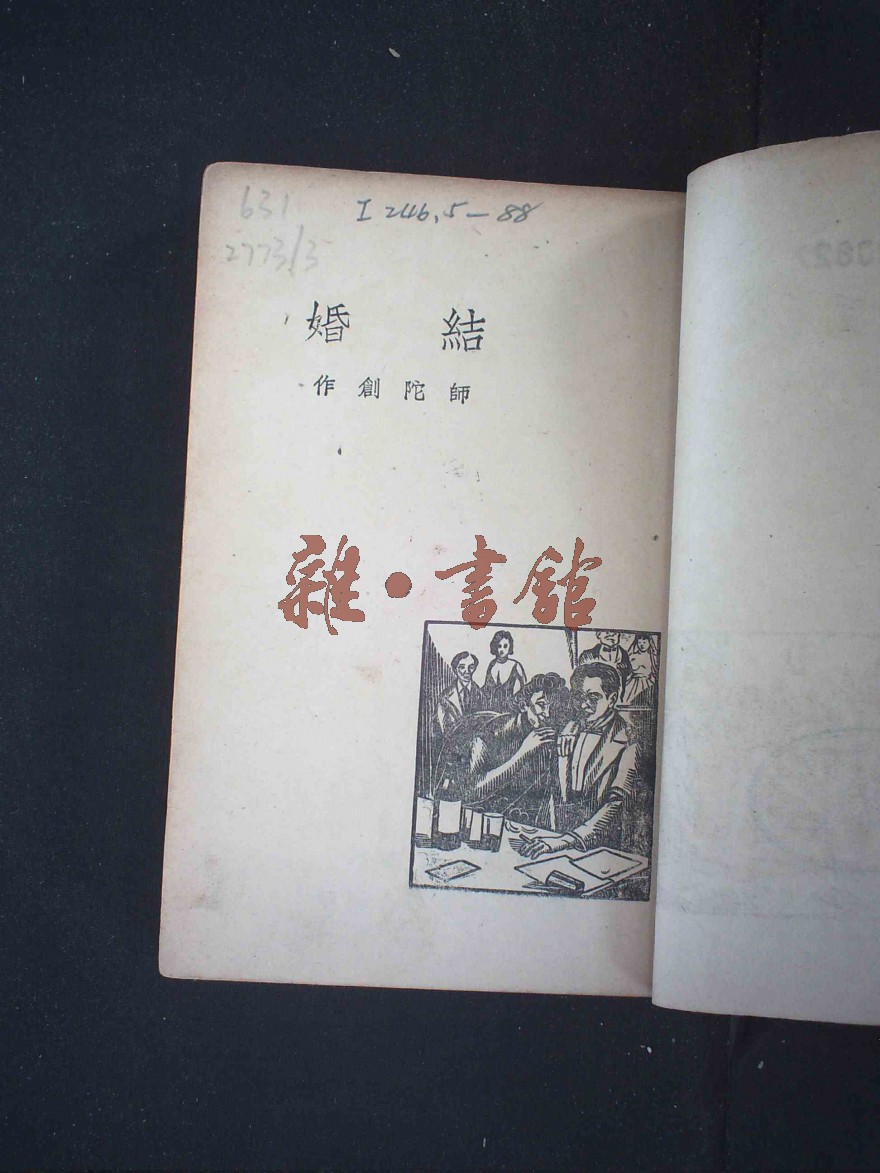 631
I 246.5-88
2773/3
結婚
師陀創作
雜·書館